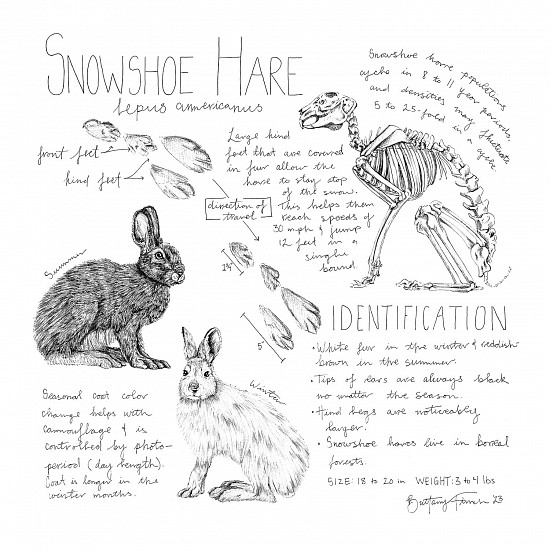 SNOWSHOE HARE
Lepus americanus
Snowshoe hare populations
cycle in 8 to 11 year periods,
and densities may fluctuate
5 to 25-fold in a cycle.
front feet
hind feet
Large hind
feet that are covered
in fur allow the
hare to stay atop
of the snow.
This helps them
reach speeds of
30 mph & jump
12 feet in a
single
bound.
direction of
travel
5"
Summer
Winter
Seasonal coat color
change helps with
camouflage & is
controlled by photo-
period (day length).
Coat is longer in the
winter months.
IDENTIFICATION
• White fur in the winter & reddish
brown in the summer.
• Tips of ears are always black
no matter the season.
• Hind legs are noticeably
larger.
• Snowshoe hares live in boreal
forests.
SIZE: 18 to 20 in WEIGHT: 3 to 4 lbs
Brittany '23